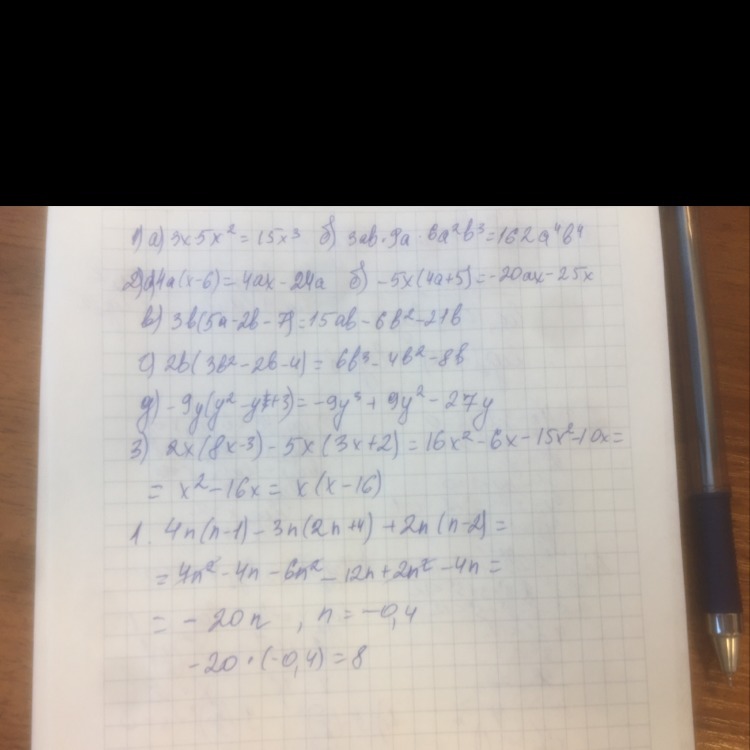 1) а) 3x5x² = 15x³ б) 3ab · 9a · 6a²b³ = 162a⁴b⁴
2) а) 4a(x-6) = 4ax - 24a б) -5x(4a+5) = -20ax - 25x
в) 3b(5a - 2b - 7) = 15ab - 6b² - 21b
с) 2b(3b² - 2b - 4) = 6b³ - 4b² - 8b
д) -9y(y² - y + 3) = -9y³ + 9y² - 27y
3) 2x(8x-3) - 5x(3x+2) = 16x² - 6x - 15x² - 10x =
= x² - 16x = x(x - 16)
1. 4n(n-1) - 3n(2n+4) + 2n(n-2) =
= 4n² - 4n - 6n² - 12n + 2n² - 4n =
= - 20n , n = -0,4
-20 · (-0,4) = 8